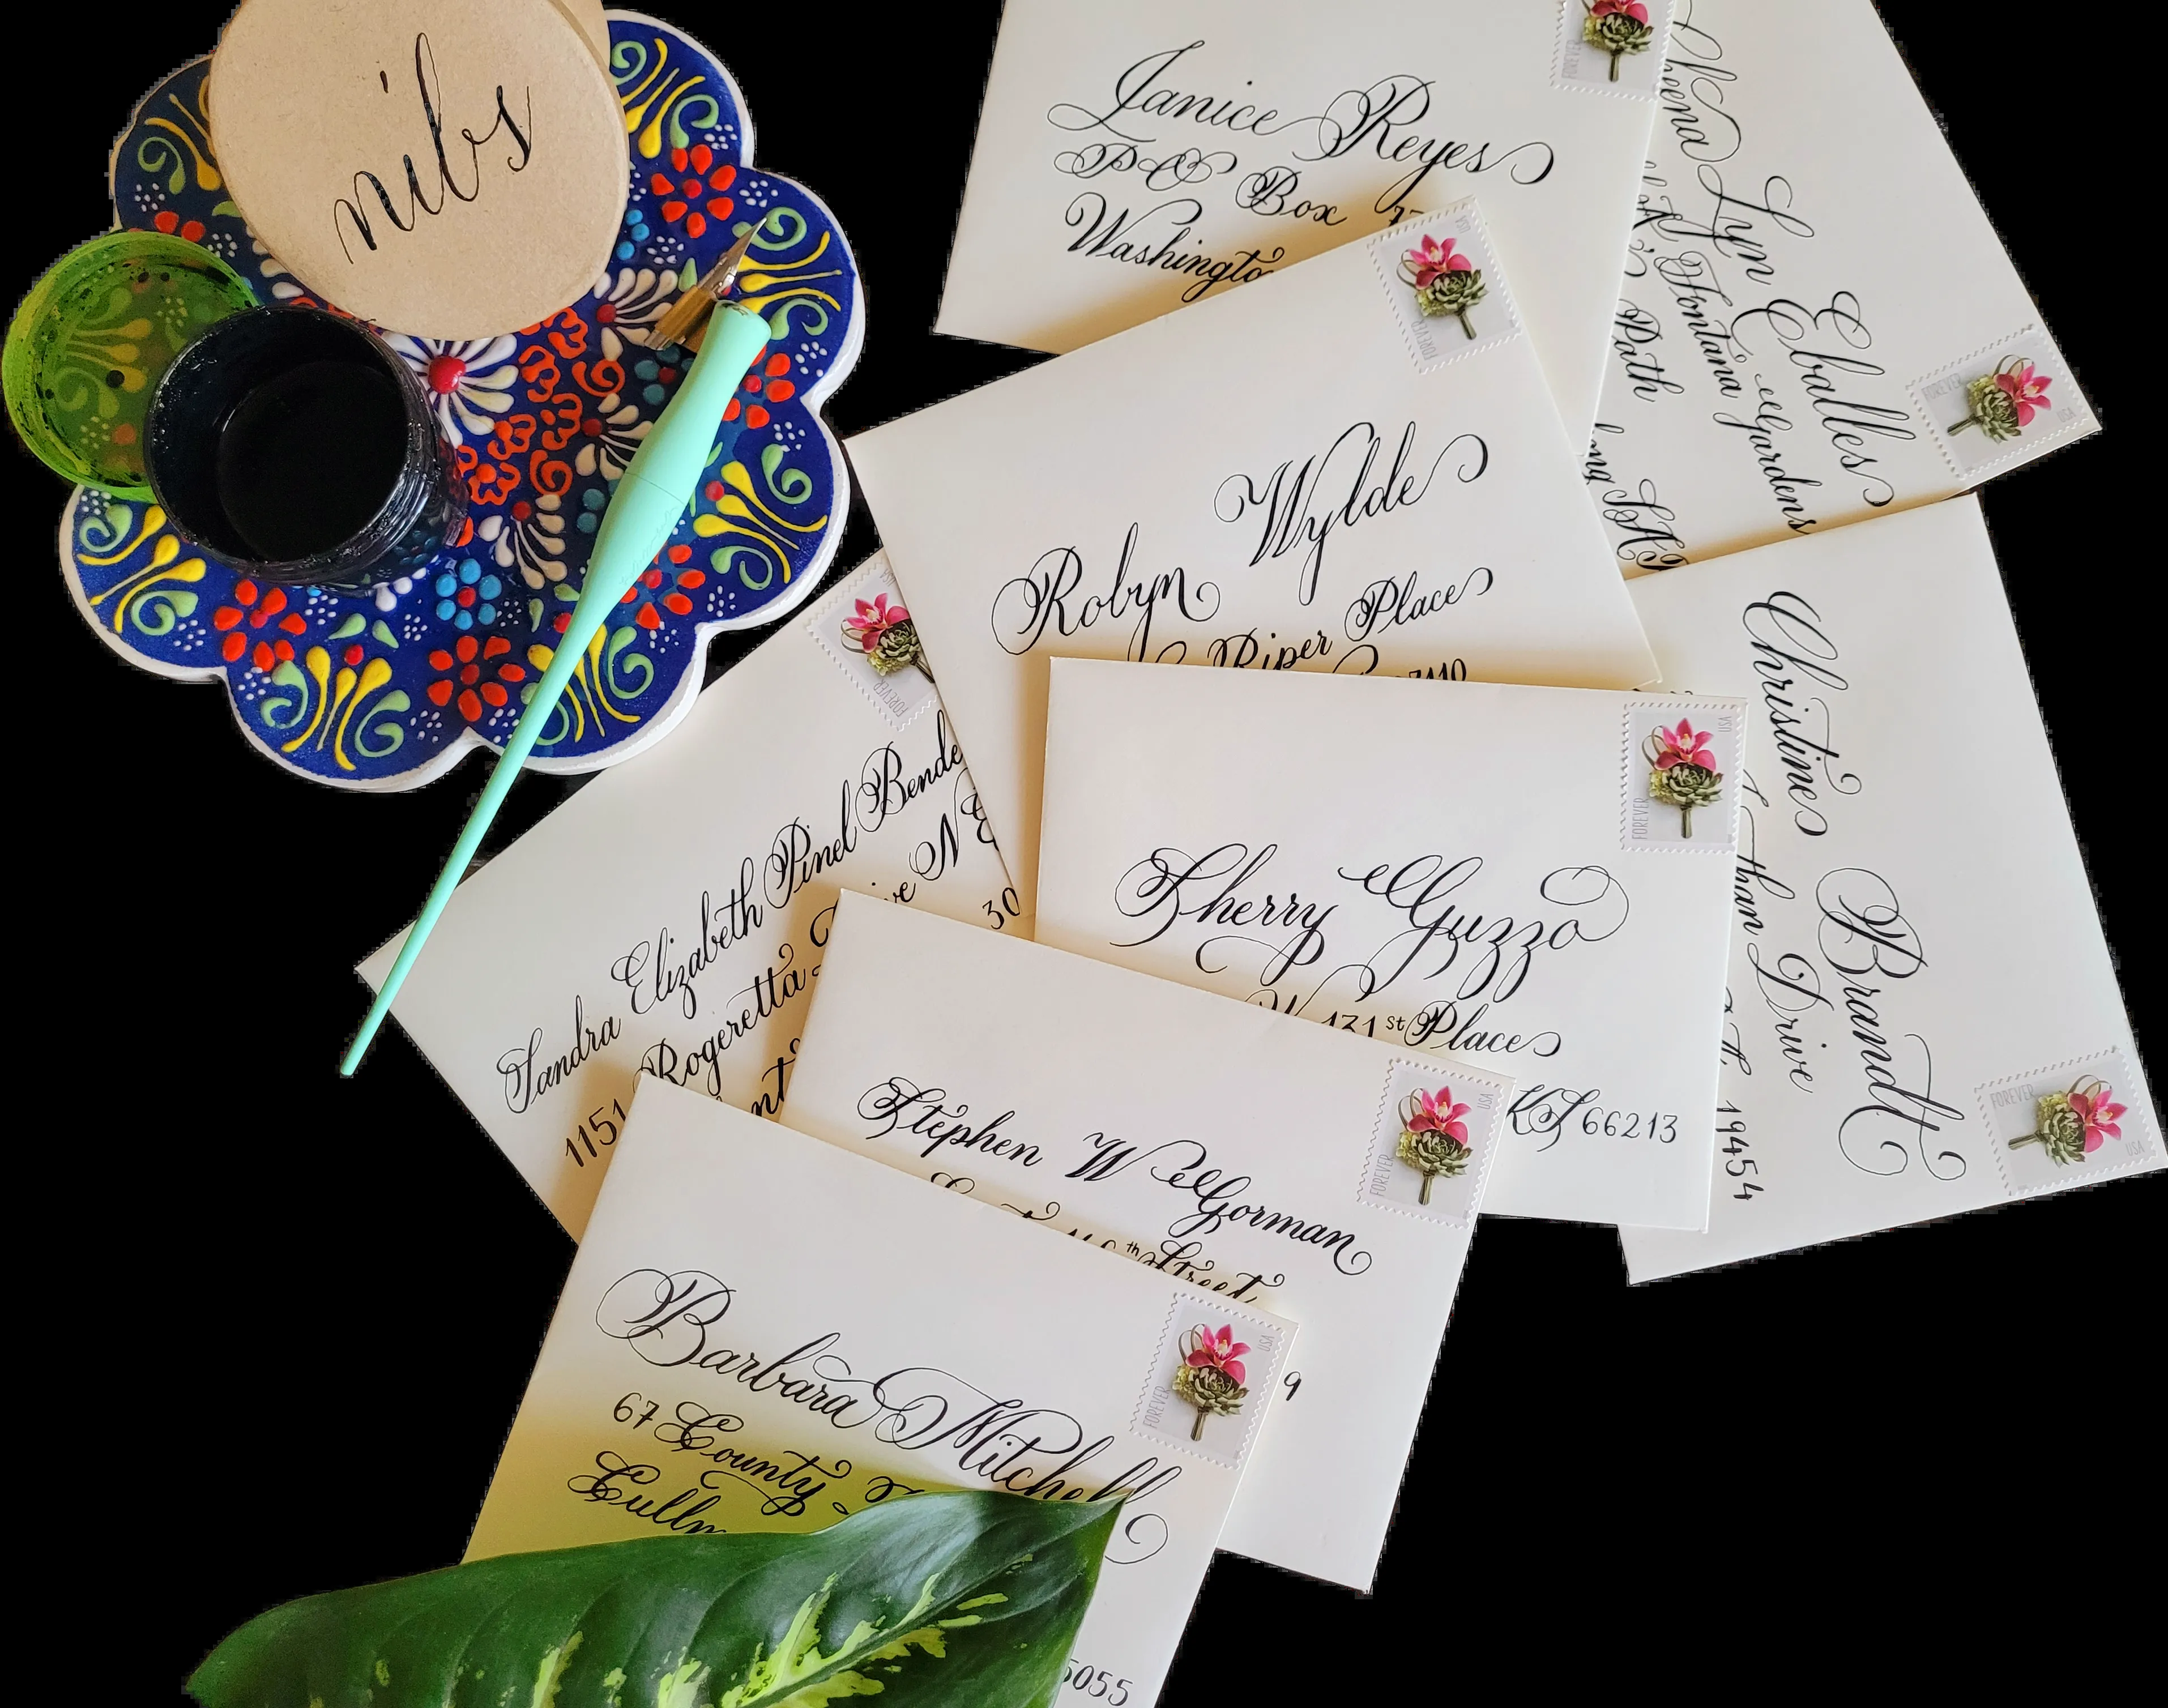 nibs
Janice Reyes
PO Box
Washingto
FOREVER
Lyn Eballes
Fontana Gardens
Path
FOREVER USA
Robyn Wylde
Piper Place
FOREVER USA
Christines Brandt
Drive
19454
FOREVER USA
Sandra Elizabeth Pinel Bende
1151 Rogeretta Drive NE
30
FOREVER USA
Sherry Guzzo
W 131st Place
KS 66213
FOREVER USA
Stephen W Gorman
th Street
9
FOREVER USA
Barbara Mitchell
67 County
Cullm
5055
FOREVER USA